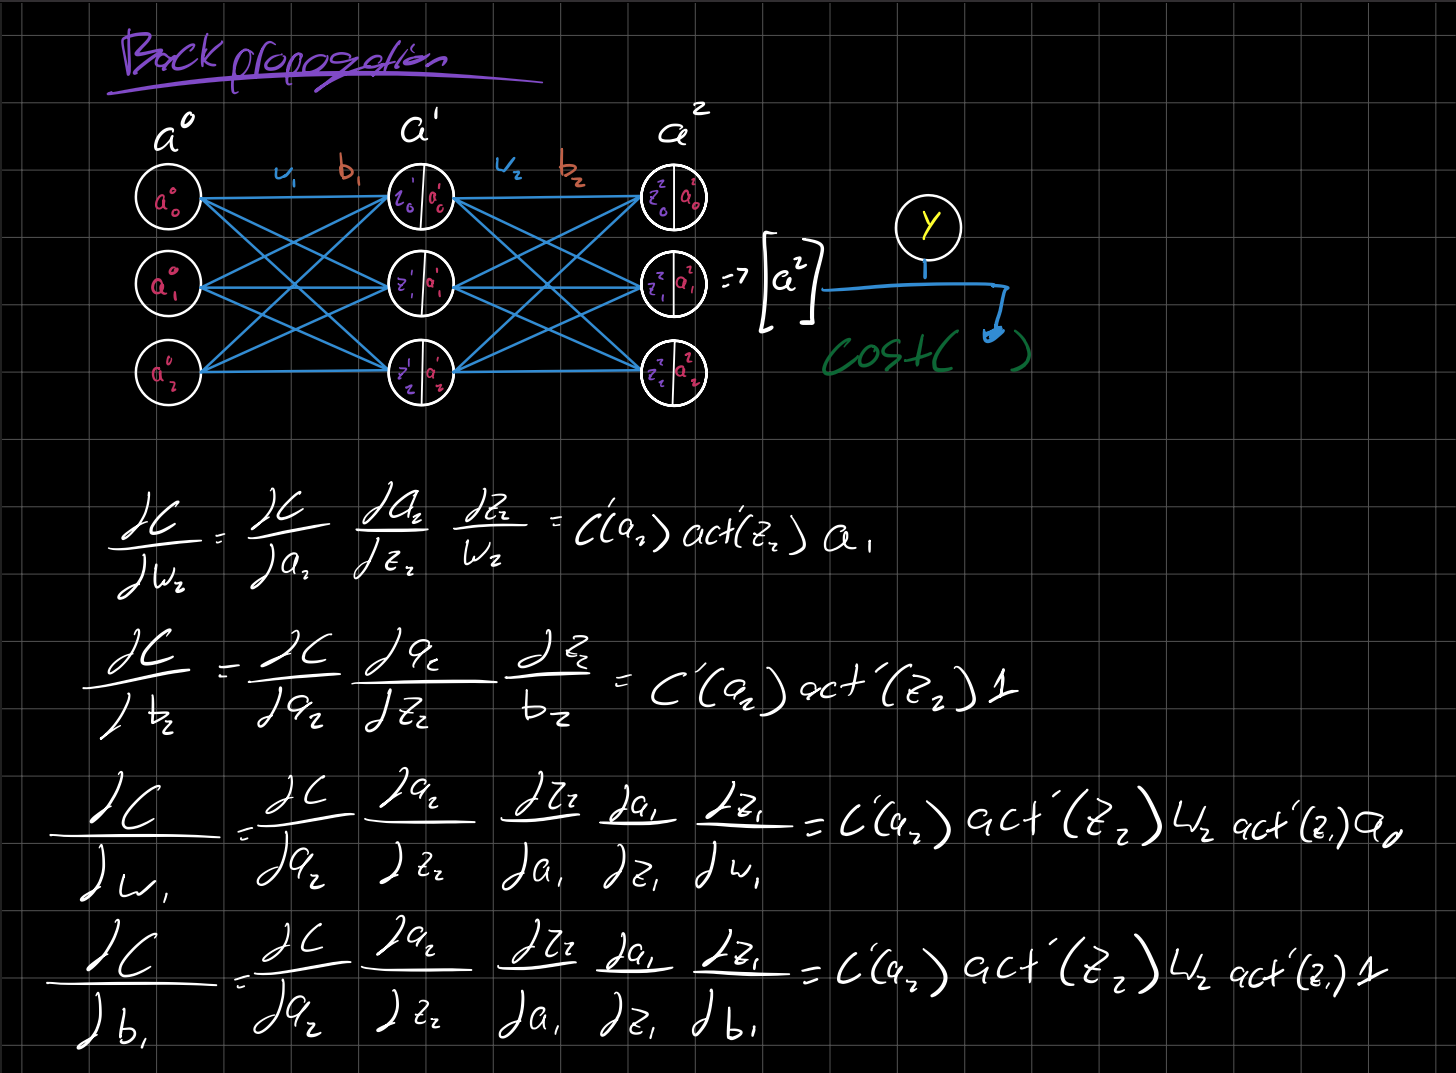 Back propagation
a⁰ a¹ a²
w₁ b₁ w₂ b₂
a⁰₀ z¹₀ a¹₀ z²₀ a²₀
Y
a⁰₁ z¹₁ a¹₁ z²₁ a²₁ => [a²]
cost( )
a⁰₂ z¹₂ a¹₂ z²₂ a²₂
∂C/∂w₂ = ∂C/∂a₂ ∂a₂/∂z₂ ∂z₂/w₂ = C'(a₂) act'(z₂) a₁
∂C/∂b₂ = ∂C/∂a₂ ∂a₂/∂z₂ ∂z₂/b₂ = C'(a₂) act'(z₂) 1
∂C/∂w₁ = ∂C/∂a₂ ∂a₂/∂z₂ ∂z₂/∂a₁ ∂a₁/∂z₁ ∂z₁/∂w₁ = C'(a₂) act'(z₂) w₂ act'(z₁) a₀
∂C/∂b₁ = ∂C/∂a₂ ∂a₂/∂z₂ ∂z₂/∂a₁ ∂a₁/∂z₁ ∂z₁/∂b₁ = C'(a₂) act'(z₂) w₂ act'(z₁) 1